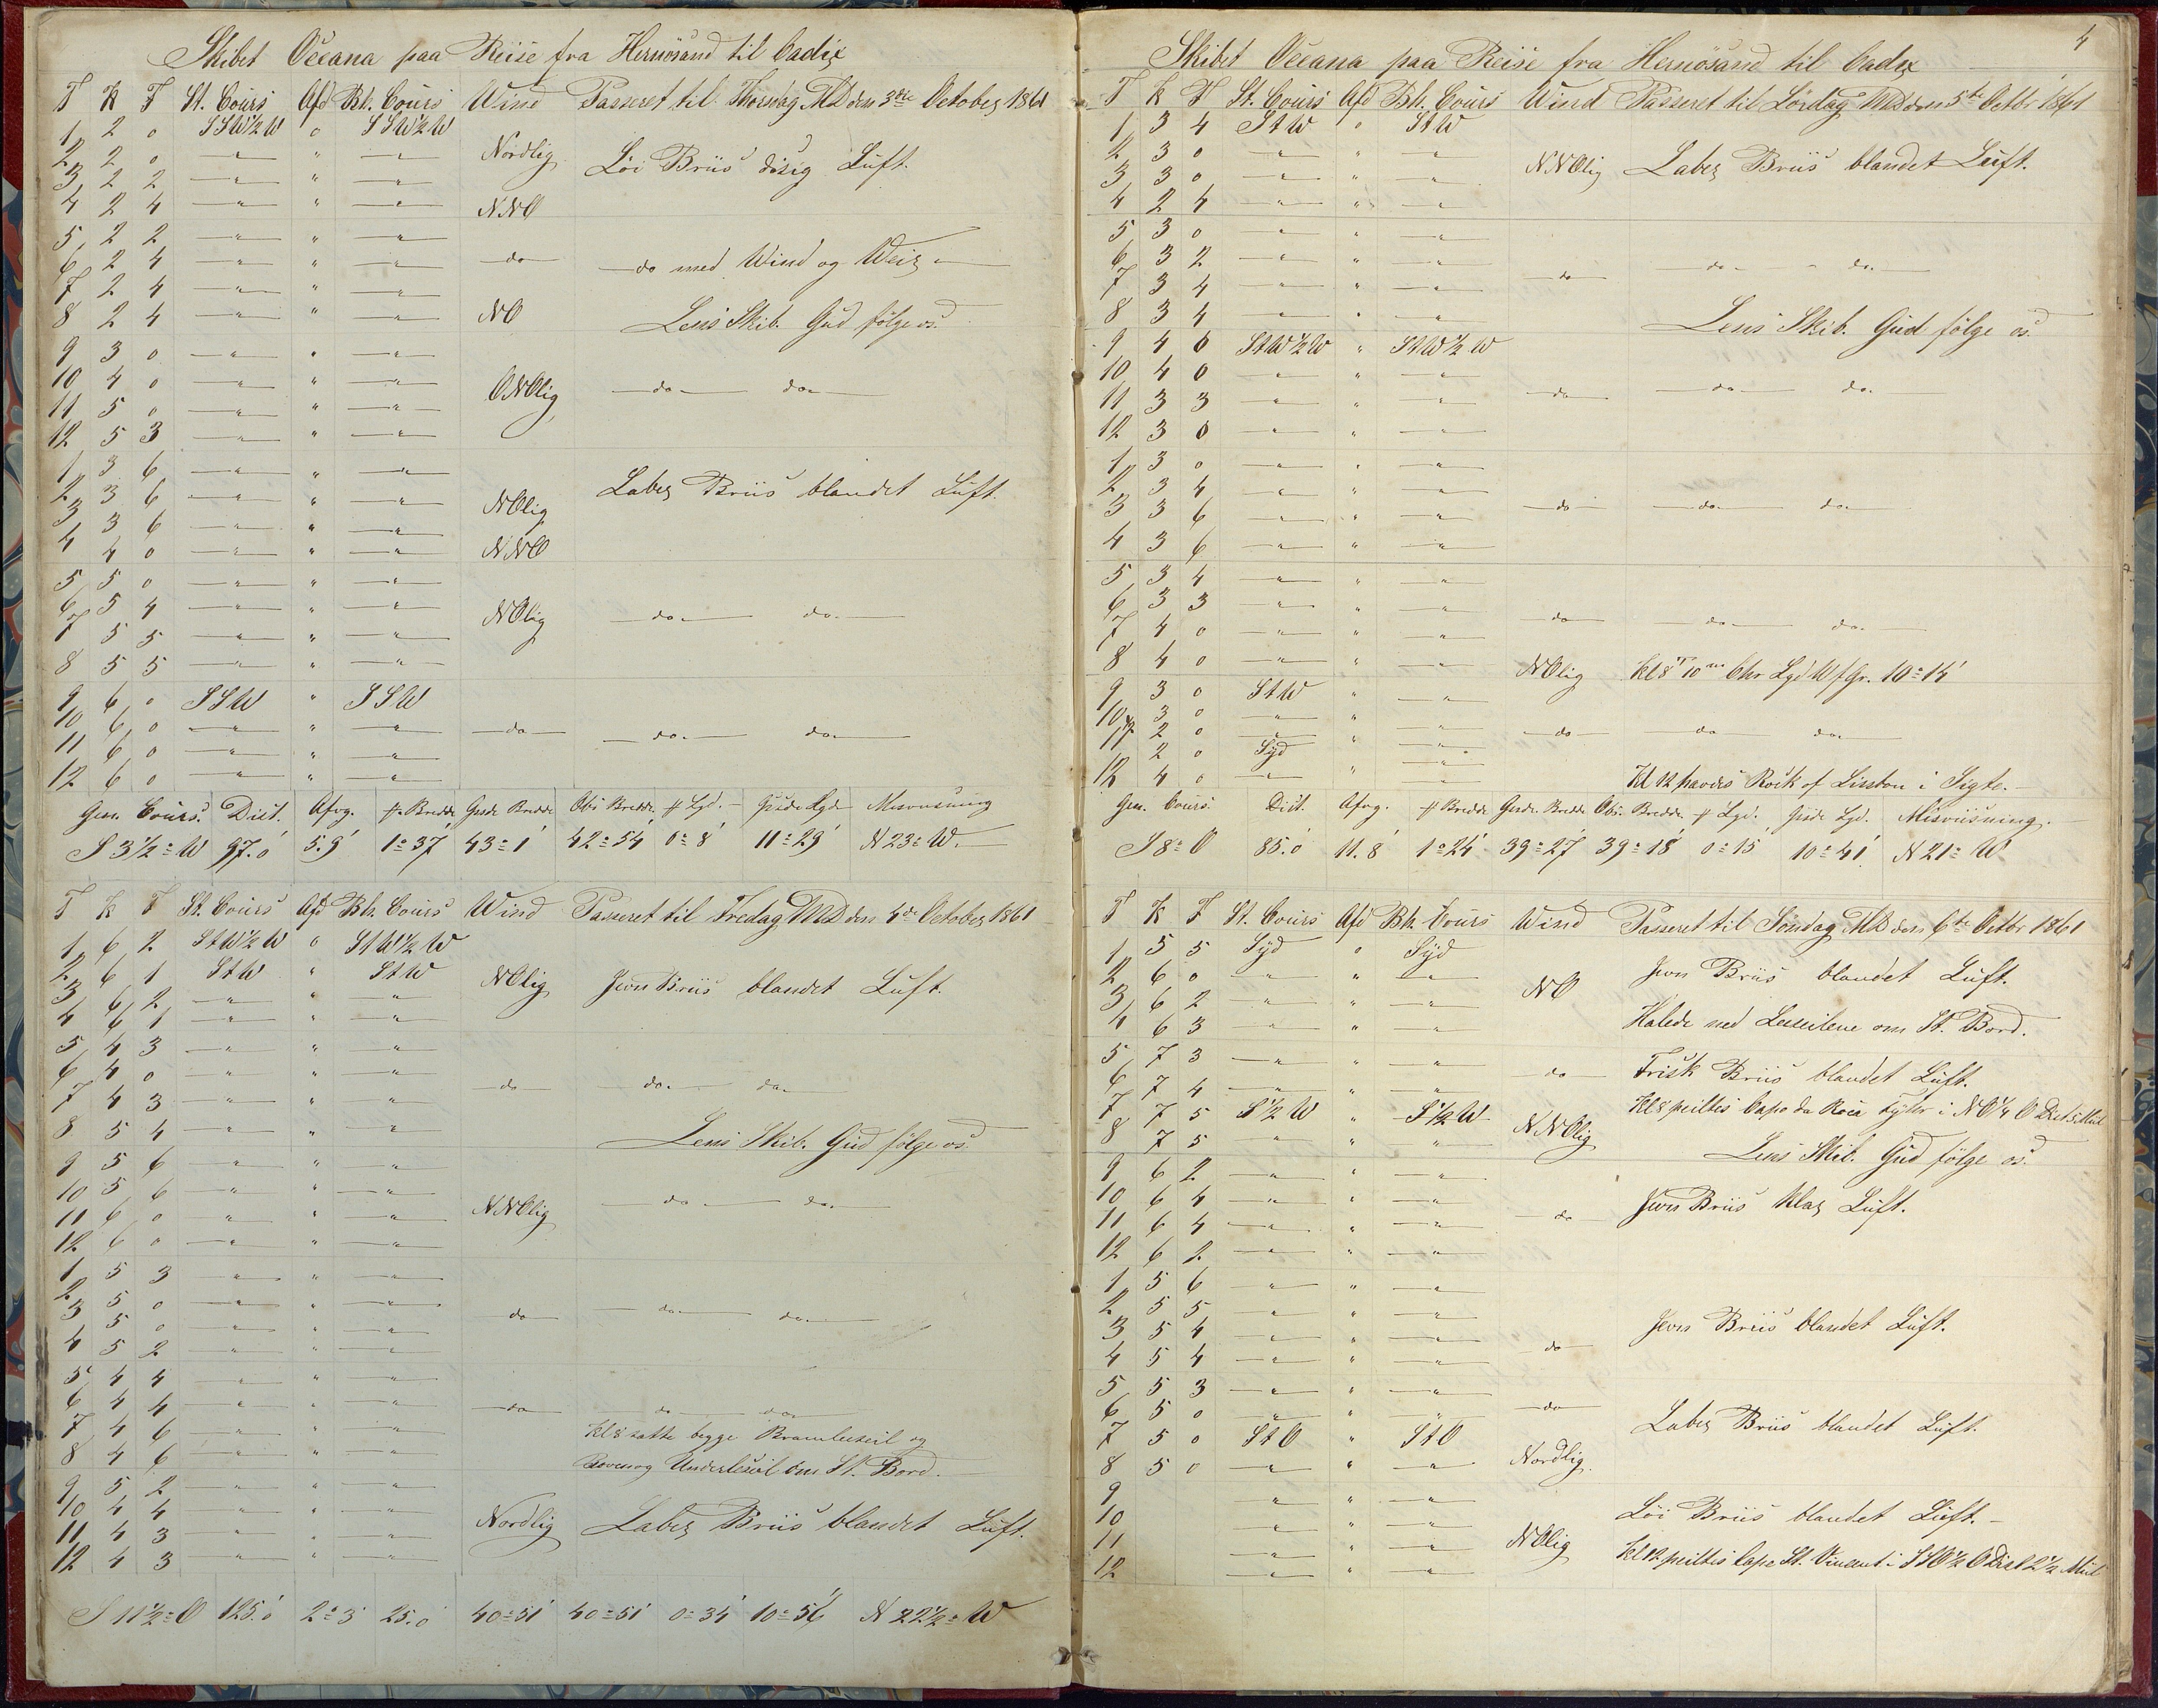 Skibet Oceana paa Reise fra Hernösand til Cadix
T K F St. Cours Afd Bh. Cours Wind Passeret til Thorsdag MD den 3de October 1861
1 2 0 SSW½W 0 SSW½W
2 2 0 — " — " — " — Nordlig Löi Briis disig Luft.
3 2 2 — " — " — " —
4 2 4 — " — " — " — NNO
5 2 2 — " — " — " —
6 2 4 — " — " — " — do — do med Wind og Weir —
7 2 4 — " — " — " —
8 2 4 — " — " — " — NO Lens Skib. Gud fölge os.
9 3 0 — " — " — " —
10 4 0 — " — " — " — ONOlig — do — do —
11 5 0 — " — " — " —
12 5 3 — " — " — " —
1 3 6 — " — " — " —
2 3 6 — " — " — " — NOlig Laber Briis blandet Luft.
3 3 6 — " — " — " —
4 4 0 — " — " — " — NNO
5 5 0 — " — " — " —
6 5 4 — " — " — " — NOlig — do — do —
7 5 5 — " — " — " —
8 5 5 — " — " — " —
9 6 0 SSW " SSW
10 6 0 — " — " — " — do — do — do —
11 6 0 — " — " — " —
12 6 0 — " — " — " —
Gen. Cours. Dist. Afvg. f. Bredde Gisde Bredde Obs Bredde f Lgd. Gisde Lgd Misvisning
S 3½° W 97.0 5.9 1°37' 43°1' 42°54' 0°8' 11°29' N 23° W.
T K F St. Cours Afd Bh. Cours Wind Passeret til Fredag MD den 4de October 1861
1 6 2 StW½W 0 StW½W
2 6 1 StW " StW NOlig Jevn Briis blandet Luft.
3 6 2 — " — " — " —
4 6 1 — " — " — " —
5 4 3 — " — " — " —
6 4 0 — " — " — " — do — do — do —
7 4 3 — " — " — " —
8 5 4 — " — " — " — Lens Skib. Gud fölge os.
9 5 6 — " — " — " —
10 5 6 — " — " — " — NNOlig — do — do —
11 6 0 — " — " — " —
12 6 0 — " — " — " —
1 5 3 — " — " — " —
2 5 0 — " — " — " — do — do — do —
3 5 0 — " — " — " —
4 5 2 — " — " — " —
5 4 4 — " — " — " —
6 4 4 — " — " — " — do — do — do —
7 4 6 — " — " — " — Kl 8 satte begge Bramleseil og
8 4 6 — " — " — " — Underleseil om St. Bord.
9 5 2 — " — " — " —
10 4 4 — " — " — " — Nordlig Laber Briis blandet Luft.
11 4 3 — " — " — " —
12 4 3 — " — " — " —
S 11½° O 125.0 2°3' 25.0 40°51' 40°51' 0°34' 10°56' N 22½° W
4
Skibet Oceana paa Reise fra Hernösand til Cadix
T K F St. Cours Afd Bh. Cours Wind Passeret til Lördag MD den 5te Octbr 1861
1 3 4 StW 0 StW
2 3 0 — " — " — " — NNOlig Laber Briis blandet Luft.
3 3 0 — " — " — " —
4 2 4 — " — " — " —
5 3 0 — " — " — " —
6 3 2 — " — " — " — do — do — do —
7 3 4 — " — " — " —
8 3 4 — " — " — " — Lens Skib. Gud fölge os.
9 4 0 StW½W " StW½W
10 4 0 — " — " — " — do — do — do —
11 3 3 — " — " — " —
12 3 0 — " — " — " —
1 3 0 — " — " — " —
2 3 4 — " — " — " —
3 3 6 — " — " — " — do — do — do —
4 3 6 — " — " — " —
5 3 4 — " — " — " —
6 3 3 — " — " — " — do — do — do —
7 4 0 — " — " — " —
8 4 0 — " — " — " — NOlig Kl 8 T 10 m Chr Lgd W f Gr. 10°14'
9 3 0 StW " — " —
10 3 0 — " — " — " —
11 2 0 — " — " — " — do — do — do —
2 0 Syd " — " —
12 4 0 — " — " — " — Kl 12 havdes Rock of Lissbon i Sigte.
Gen. Cours. Dist. Afvg. f Bredde Gisde Bredde Obs. Bredde f Lgd. Gisde Lgd. Misviisning.
S 8° O 85.0 11.8 1°24' 39°27' 39°18' 0°15' 10°41' N 21° W
T K F St. Cours Afd Bh. Cours Wind Passeret til Söndag MD den 6te Octbr 1861
1 5 5 Syd 0 Syd
2 6 0 — " — " — " — NO Jevn Briis blandet Luft.
3 6 2 — " — " — " —
4 6 3 — " — " — " — Halede ned Leseilene om St. Bord.
5 7 3 — " — " — " —
6 7 4 — " — " — " — do Frisk Briis blandet Luft.
7 7 5 S½W " S½W Kl 8 peiltes Capo da Roca fyhr i NO¼O Dist 5 Miil
8 7 5 — " — " — " — NNOlig Lens Skib. Gud fölge os.
9 6 2 — " — " — " —
10 6 4 — " — " — " — do Jevn Briis Klar Luft.
11 6 4 — " — " — " —
12 6 2 — " — " — " —
1 5 6 — " — " — " —
2 5 5 — " — " — " —
3 5 4 — " — " — " — do Jevn Briis blandet Luft.
4 5 4 — " — " — " —
5 5 3 — " — " — " —
6 5 0 — " — " — " — do Laber Briis blandet Luft.
7 5 0 StO " StO
8 5 0 — " — " — " — Nordlig
9 — " — " — " —
10 — " — " — " — Löi Briis blandet Luft. —
11 — " — " — " — NOlig
12 — " — " — " — Kl 12 peiltes Cape St. Vincent i SSO½O Dist 2½ Miil